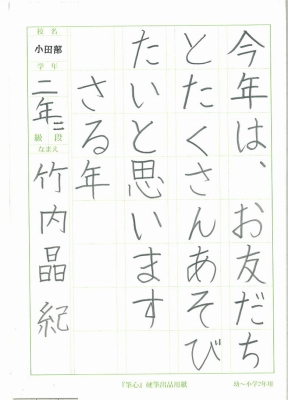 今年は、お友だち
とたくさんあそび
たいと思います
さる年
校名
小田部
学年
二年
級段
なまえ
竹内晶紀
『筆心』硬筆出品用紙